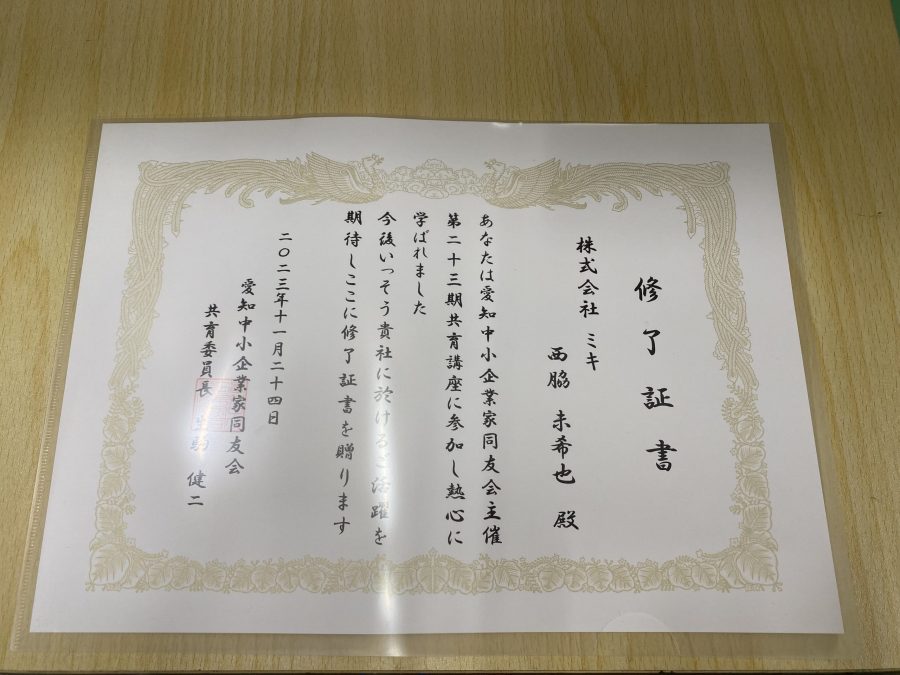 修了証書
株式会社 ミキ
西脇 未希也 殿
あなたは愛知中小企業家同友会主催
第二十三期共育講座に参加し熱心に
学ばれました
今後いっそう貴社に於けるご活躍を
期待しここに修了証書を贈ります
二〇二三年十一月二十四日
愛知中小企業家同友会
共育委員長 健二